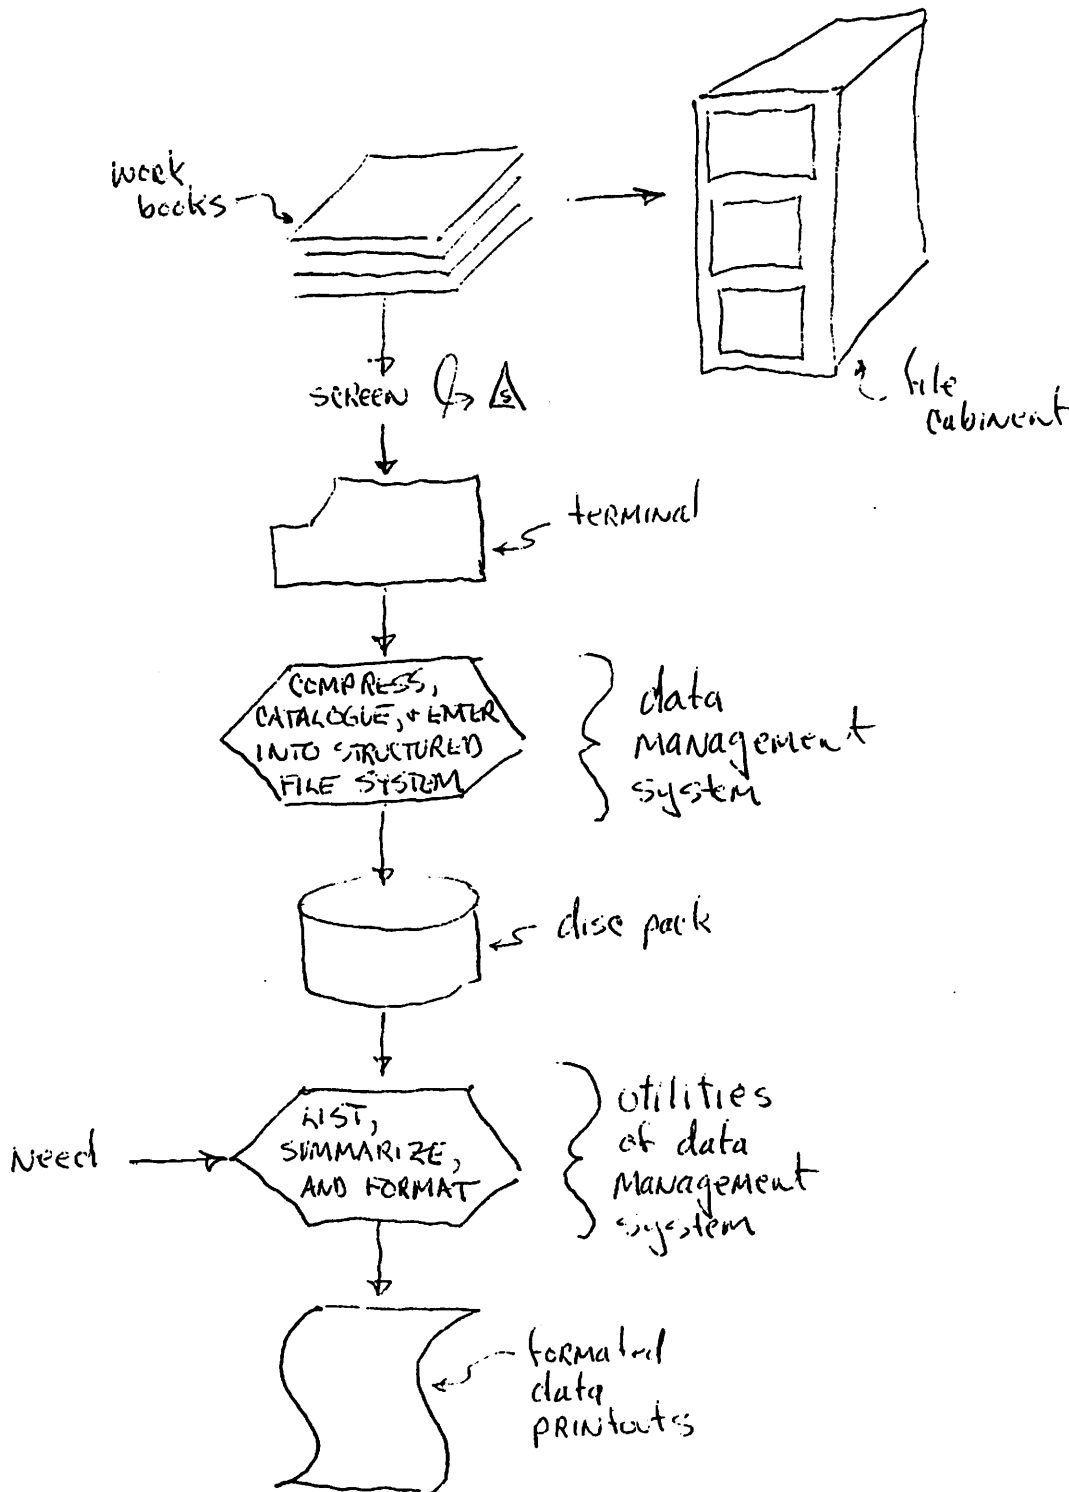 work
books
SCREEN
S
file
cabinent
terminal
COMPRESS,
CATALOGUE, + ENTER
INTO STRUCTURED
FILE SYSTEM
data
management
system
disc pack
Need
LIST,
SUMMARIZE,
AND FORMAT
utilities
of data
management
system
formated
data
printouts